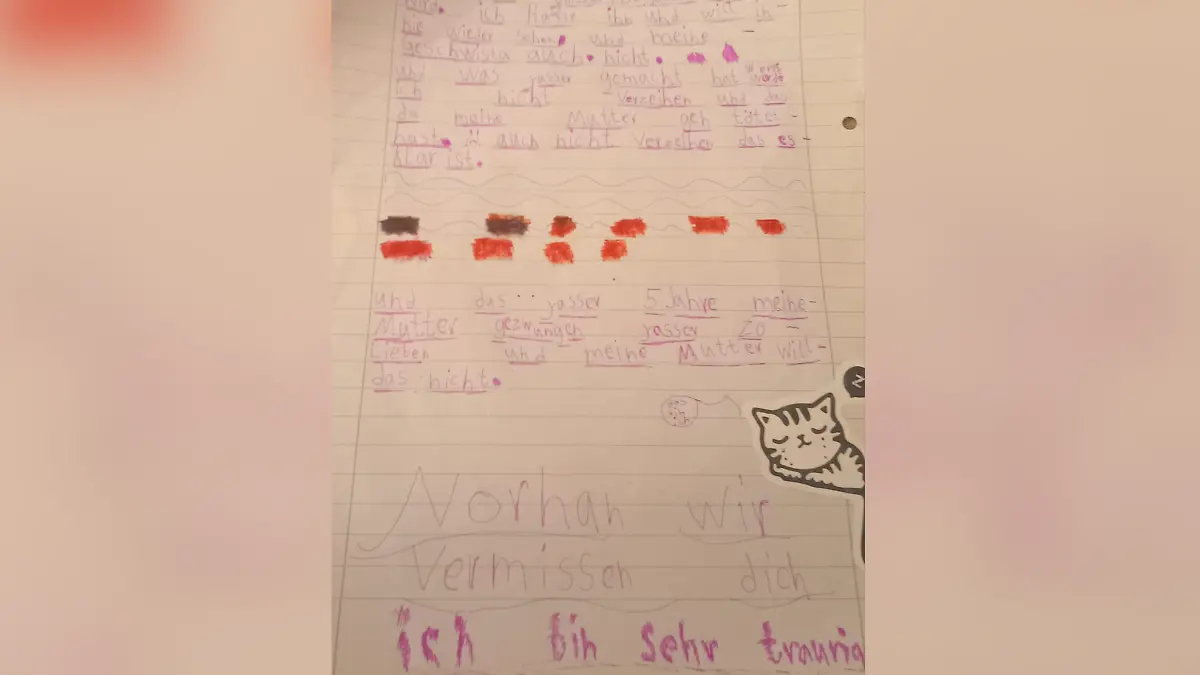 wird. ich Hasse ihn und will ih-
nie wieder sehen und meine -
Geschwista auch nicht.
und was jasser gemacht hat werde
ich nicht Verzeihen und das
du meine Mutter geh tötet -
hast. auch nicht Verzeihen das es -
klar ist.
und das jasser 5 Jahre meine-
Mutter gezwungen jasser zo -
Lieben und meine Mutter will-
das nicht.
Norhan wir
Vermissen dich
ich bin sehr traurig